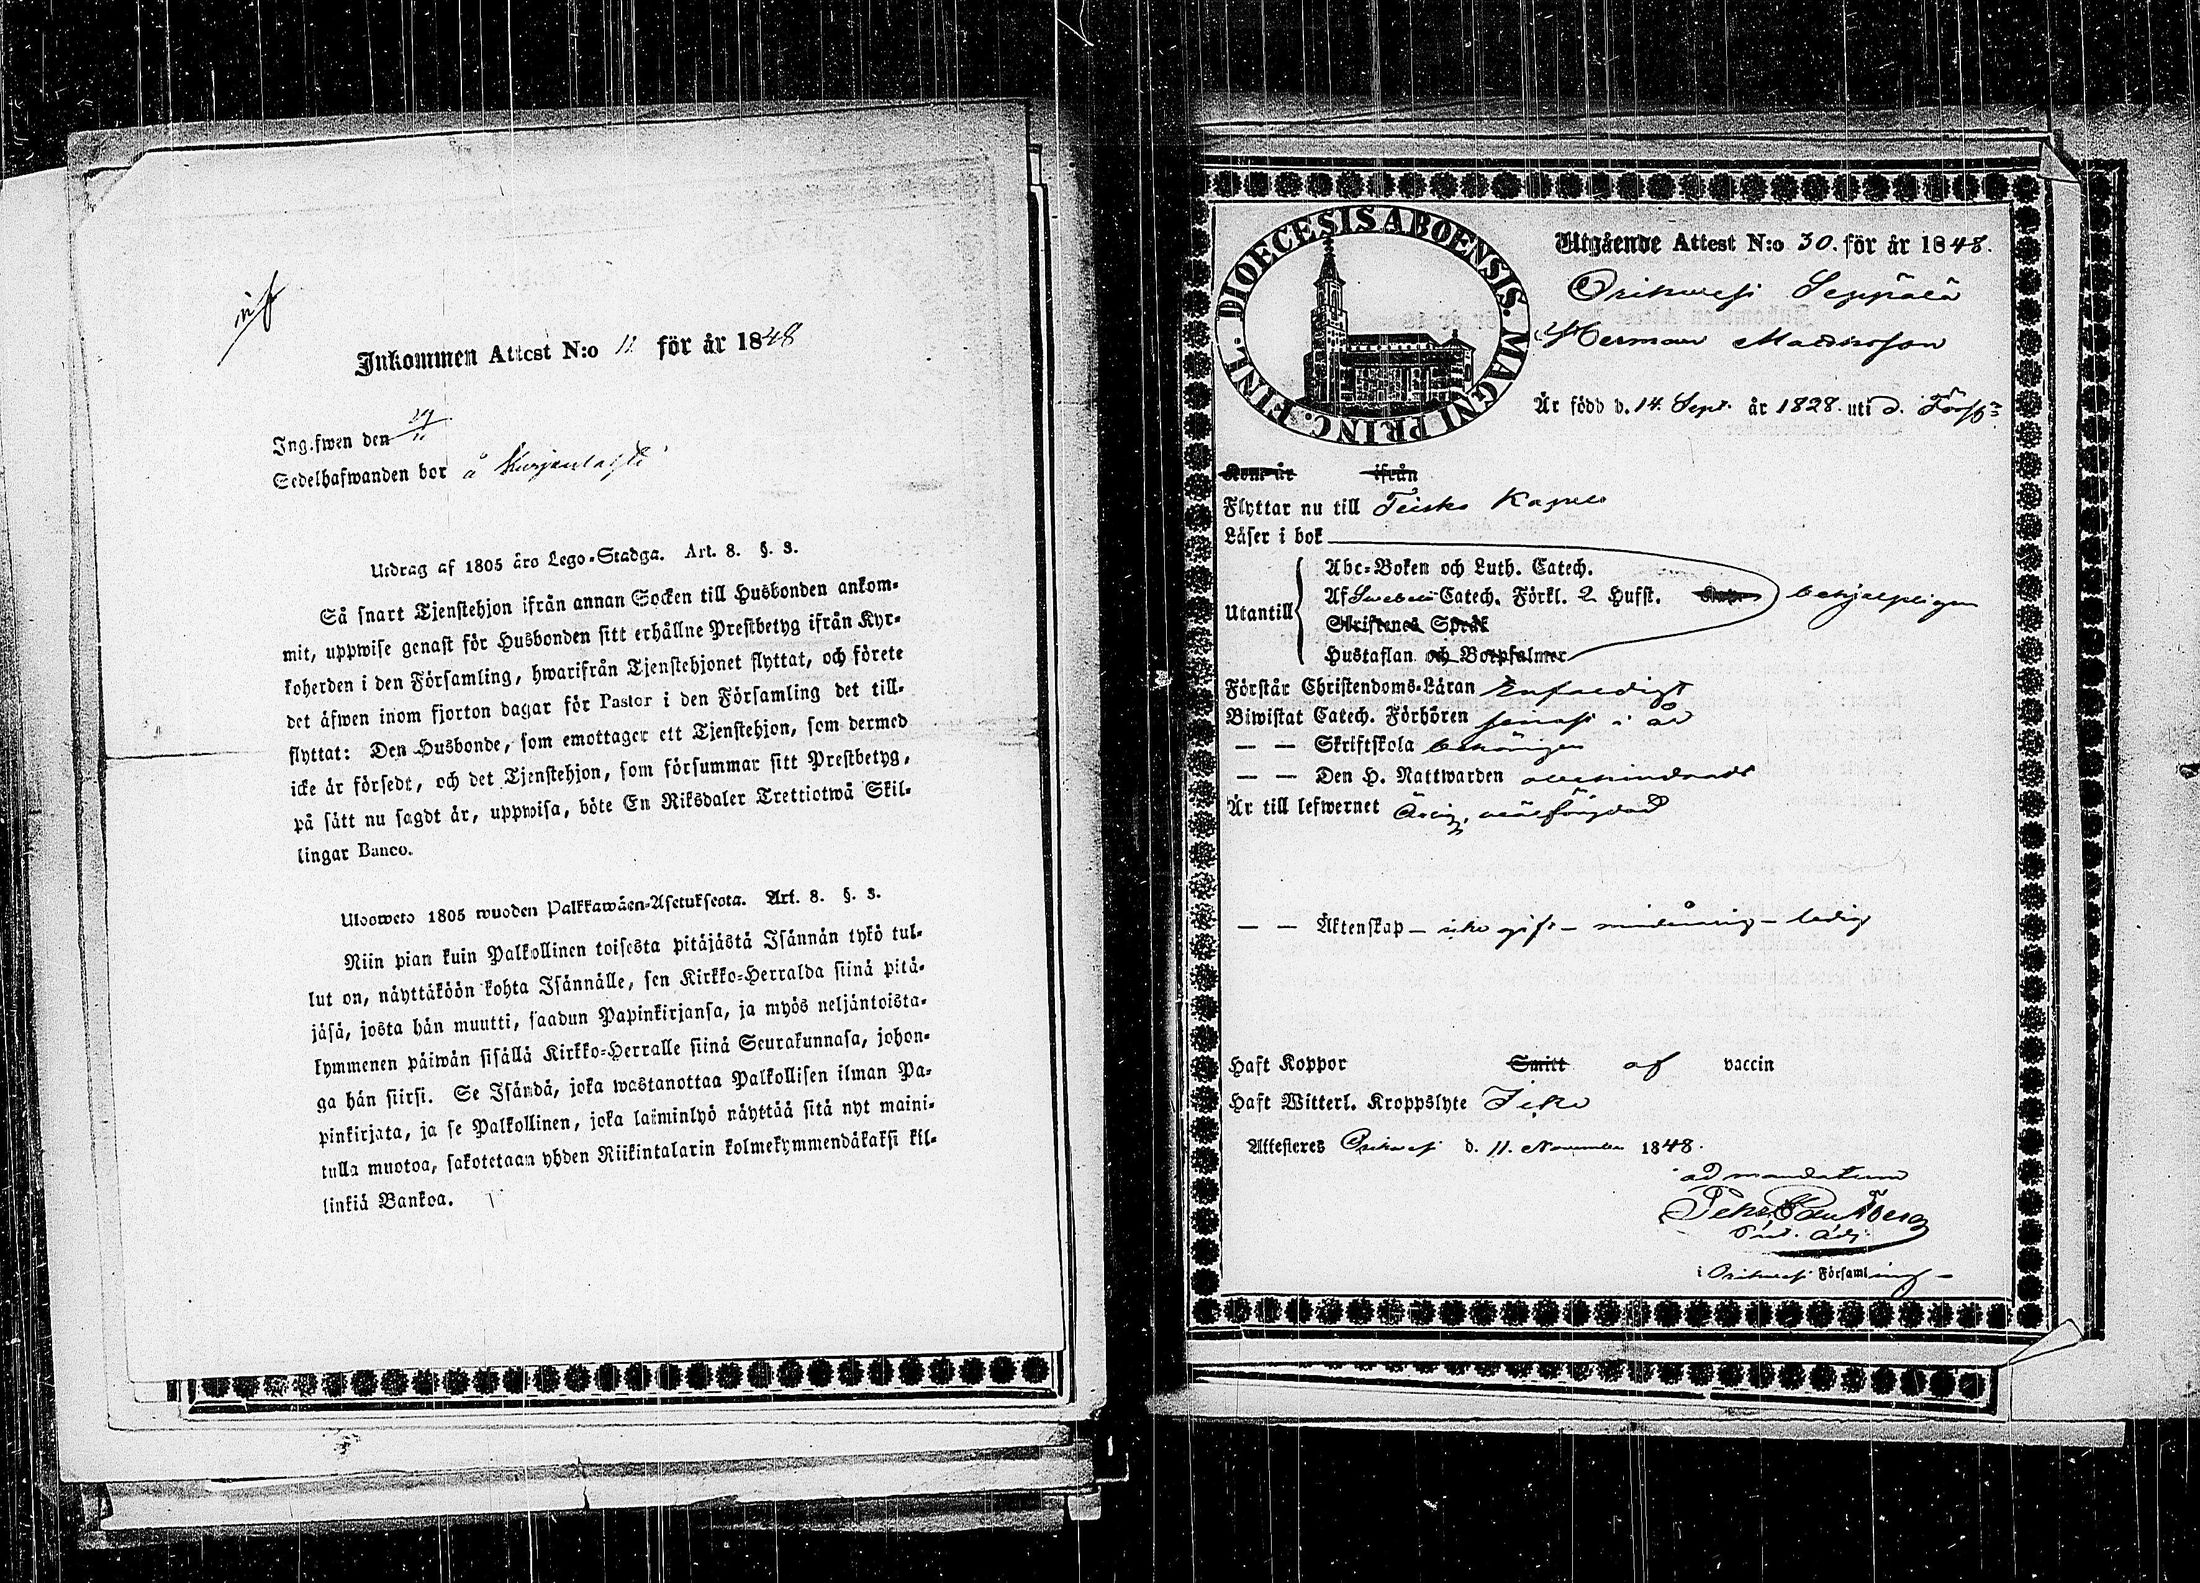 Inkommen Attest N:o 11 för år 1848
Ing.fwen den
Sedelhafwanden bor å
Utdrag af 1805 års Lego-Stadga. Art. 8. §. 3.
Så snart Tjenstehjon ifrån annan Socken till Husbonden ankom-
mit, uppwise genast för Husbonden sitt erhållne Prestbetyg ifrån Kyr-
koherden i den Församling, hwarifrån Tjenstehjonet flyttat, och förete
det äfwen inom fjorton dagar för Pastor i den Församling det till-
flyttat: Den Husbonde, som emottager ett Tjenstehjon, som dermed
icke är försedt, och det Tjenstehjon, som försummar sitt Prestbetyg,
på sätt nu sagdt är, uppwisa, böte En Riksdaler Trettiotwå Skil-
lingar Banco.
Ulosweto 1805 wuoden Palkkawäen-Asetuksesta. Art. 8. §. 3.
Niin pian kuin Palkollinen toisesta pitäjästä Isännän tykö tul-
lut on, näyttäköön kohta Isännälle, sen Kirkko-Herralda siinä pitä-
jäsä, josta hän muutti, saadun Papinkirjansa, ja myös neljäntoista-
kymmenen päiwän sisällä Kirkko-Herralle siinä Seurakunnasa, johon-
ga hän siirsi. Se Isändä, joka wastanottaa Palkollisen ilman Pa-
pinkirjata, ja se Palkollinen, joka laiminlyö näyttää sitä nyt maini-
tulla muotoa, sakotetaan yhden Riikintalarin kolmekymmendäkaksi kil-
linkiä Bankoa.
DIOECESIS ABOENSIS. MAGNI PRINC. FINL.
Utgående Attest N:o 30. för år 1848.
Orihwesi Seppälä
Herman Mattsson
Är född d. 14. Sept. år 1828. uti d. Förs:
Kom år ifrån
Flyttar nu till Teisko Kapell
Läser i bok
Utantill
Abc-Boken och Luth. Catech.
Af Swebeli Catech. Förkl. 2 Hufst. behjelpligen
Skriftenes Språk
Hustaflan och Botpsalmer
Förstår Christendoms-Läran Enfaldigt
Biwistat Catech. Förhören senast i år
— — Skriftskola behörigen
— — Den H. Nattwarden obehindrad
Är till lefwernet Ärlig, wälfrejdad
— — Äktenskap — icke gift — minderårig — ledig
Haft Koppor Smitt af vaccin
Haft Witterl. Kroppslyte Icke
Attesteres Orihwesi d. 11. November 1848.
ad mandatum
i Orihwesi Församling —